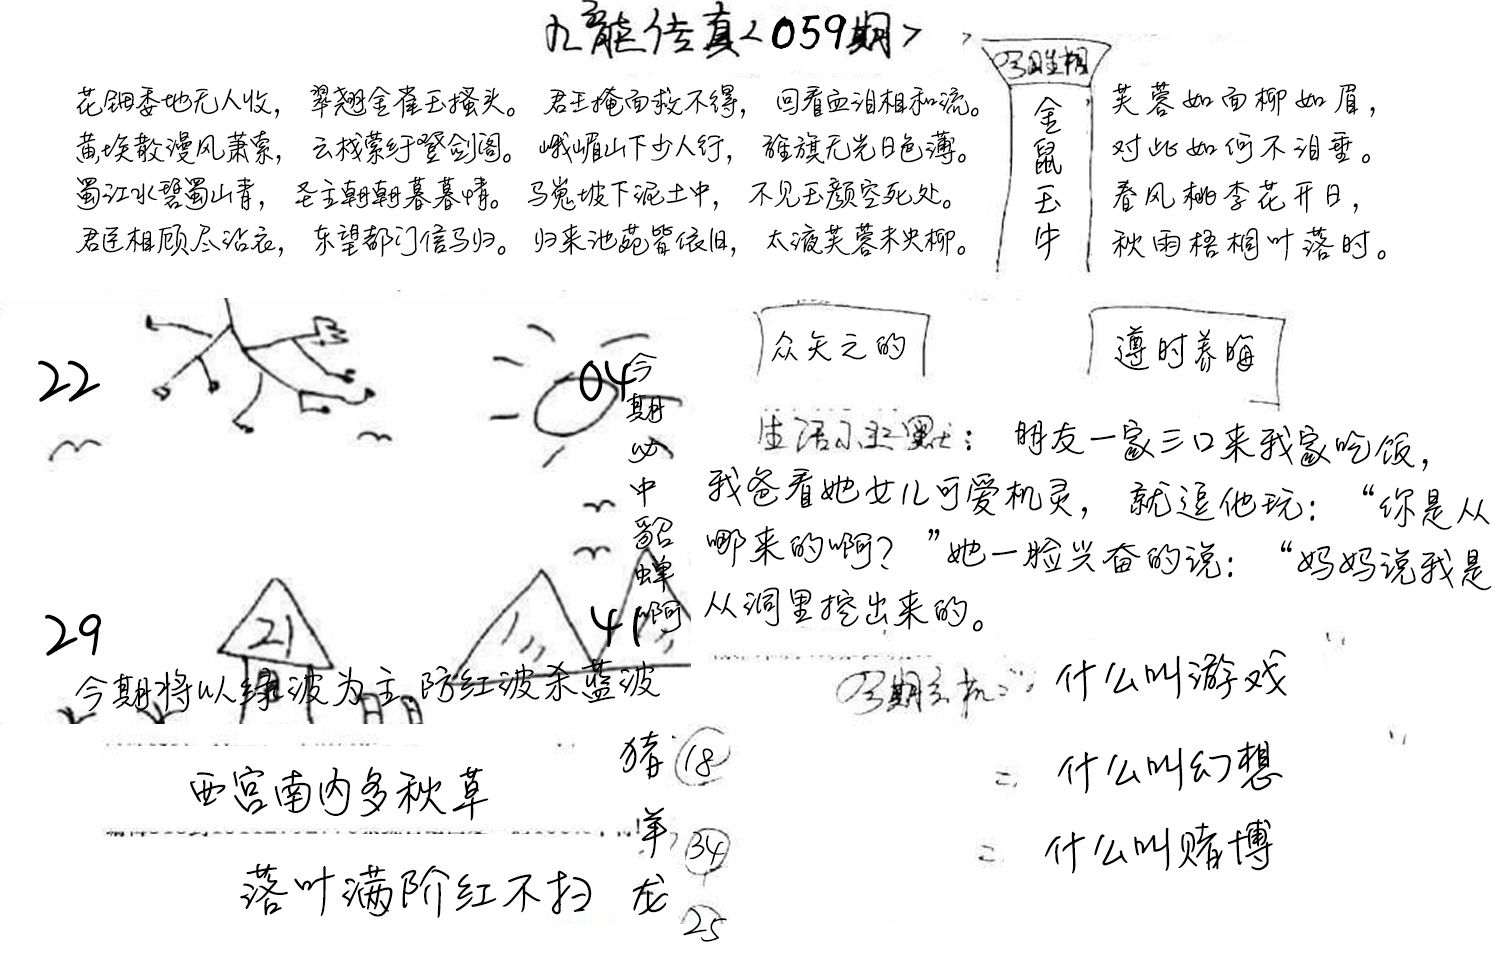 九龙传真<059期>
花钿委地无人收，翠翘金雀玉搔头。君王掩面救不得，回看血泪相和流。
黄埃散漫风萧索，云栈萦纡登剑阁。峨嵋山下少人行，旌旗无光日色薄。
蜀江水碧蜀山青，圣主朝朝暮暮情。马嵬坡下泥土中，不见玉颜空死处。
君臣相顾尽沾衣，东望都门信马归。归来池苑皆依旧，太液芙蓉未央柳。
金鼠玉牛
芙蓉如面柳如眉，
对此如何不泪垂。
春风桃李花开日，
秋雨梧桐叶落时。
22
04
29
21
41
今期必中貂蝉啊
今期将以绿波为主.防红波杀蓝波
西宫南内多秋草
落叶满阶红不扫
猪 18
羊 34
龙 25
众矢之的
遵时养晦
生活小幽默：朋友一家三口来我家吃饭，
我爸看她女儿可爱机灵，就逗他玩：“你是从
哪来的啊？”她一脸兴奋的说：“妈妈说我是
从洞里挖出来的。
今期玄机：什么叫游戏
= 什么叫幻想
= 什么叫赌博